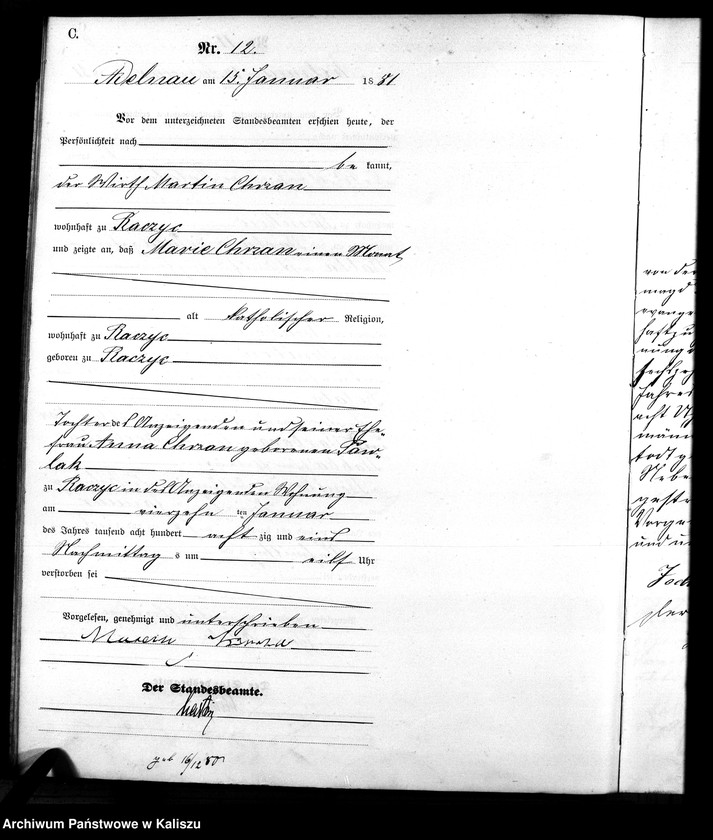 C.
Nr. 12.
Adelnau am 15. Januar 1881
Vor dem unterzeichneten Standesbeamten erschien heute, der
Persönlichkeit nach
be kannt,
der Wirth Martin Chrzan
wohnhaft zu Raczyc
und zeigte an, daß Marie Chrzan einen Monat
alt katholischer Religion,
wohnhaft zu Raczyc
geboren zu Raczyc
Tochter des Anzeigenden und seiner Ehe-
frau Anna Chrzan geborenen Paw-
lak
zu Raczyc in des Anzeigenden Wohnung
am vierzehn ten Januar
des Jahres tausend acht hundert acht zig und eins
Nachmittag s um eilf Uhr
verstorben sei
Vorgelesen, genehmigt und unterschrieben
Der Standesbeamte.
geb 16/12 80
von de
magd
evange
haft zu
nung
sechsze
Jahres
acht U
männ
todt g
Nebe
gest
Vorge
und u
der
Archiwum Państwowe w Kaliszu